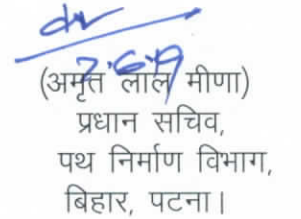 7.6.19
(अमृत लाल मीणा)
प्रधान सचिव,
पथ निर्माण विभाग,
बिहार, पटना।